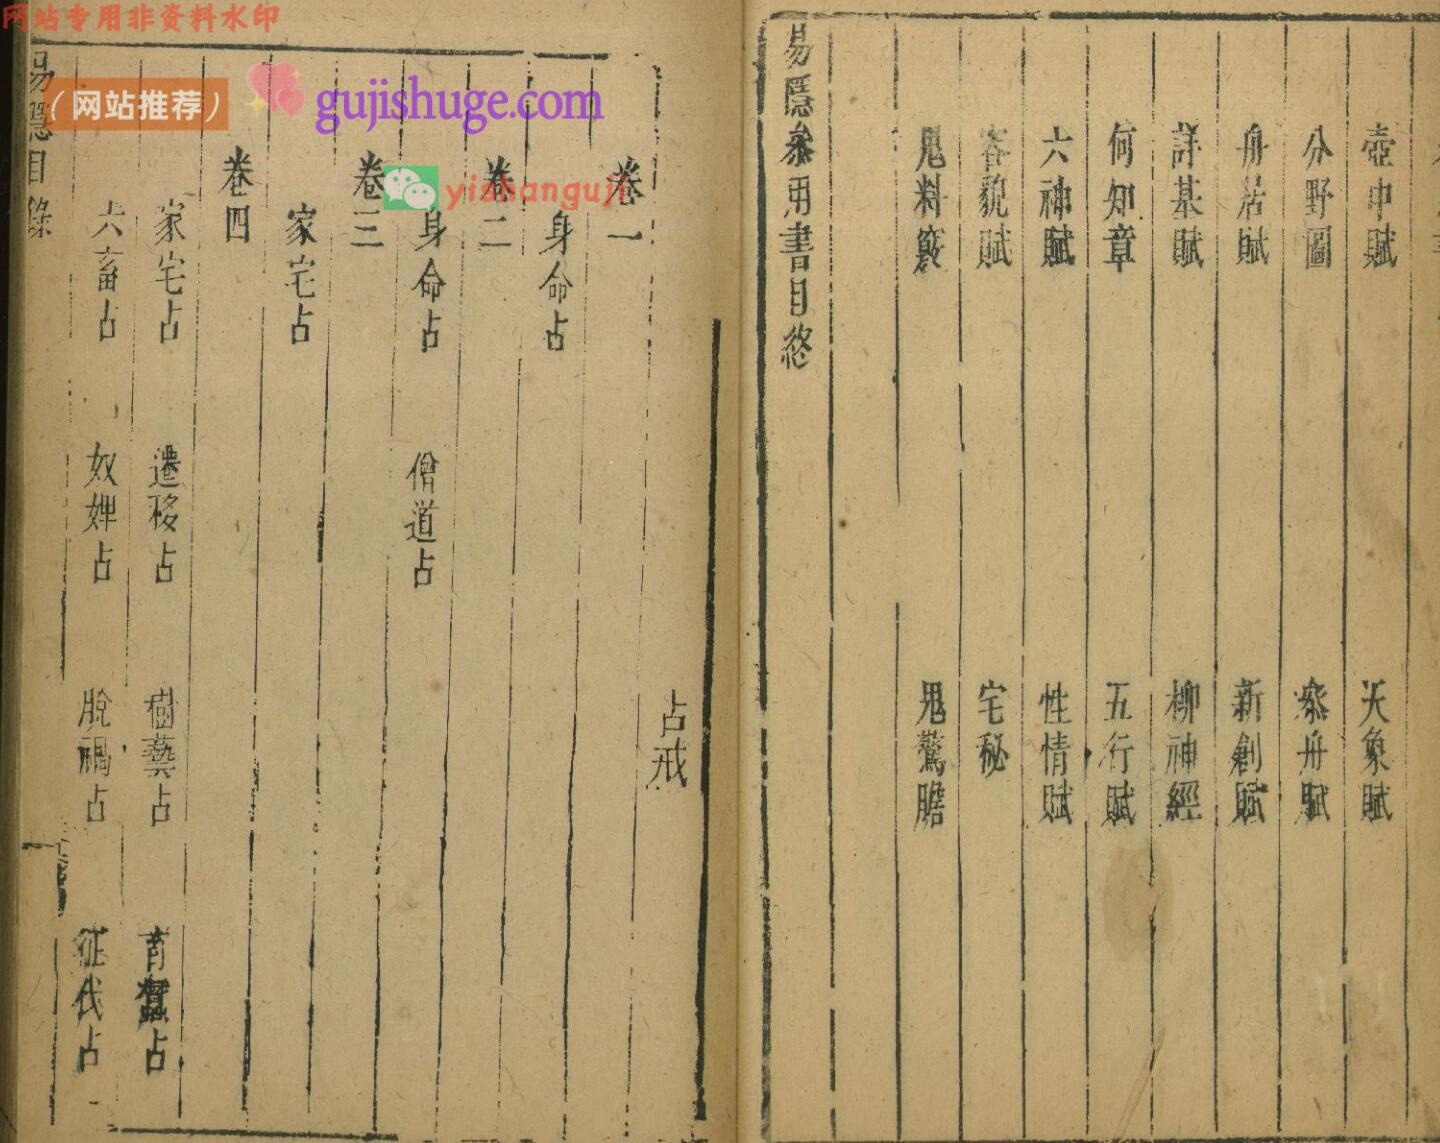 网站专用非资料水印
(网站推荐)
gujishuge.com
yishanguji
壺中賦 天象賦
分野圖 叅舟賦
舟居賦 新創賦
詳基賦 柳神經
何知章 五行賦
六神賦 性情賦
容貌賦 宅秘
鬼料竅 鬼驚膽
易隱叅用書目終
占戒
卷一
身命占
卷二
身命占 僧道占
卷三
家宅占
卷四
家宅占 遷移占 樹藝占 育蠶占
六畜占 奴婢占 脫禍占 征伐占
易隱目錄 一